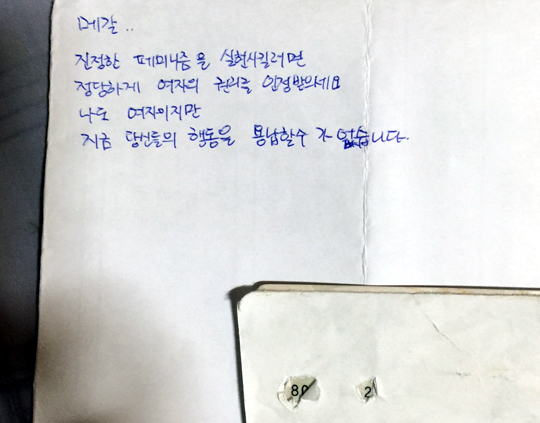 메갈..
진정한 페미니즘을 실현시킬려면
정당하게 여자의 권리를 인정받으세요
나도 여자이지만
지금 당신들의 행동을 용납할수가 없습니다.
80
2